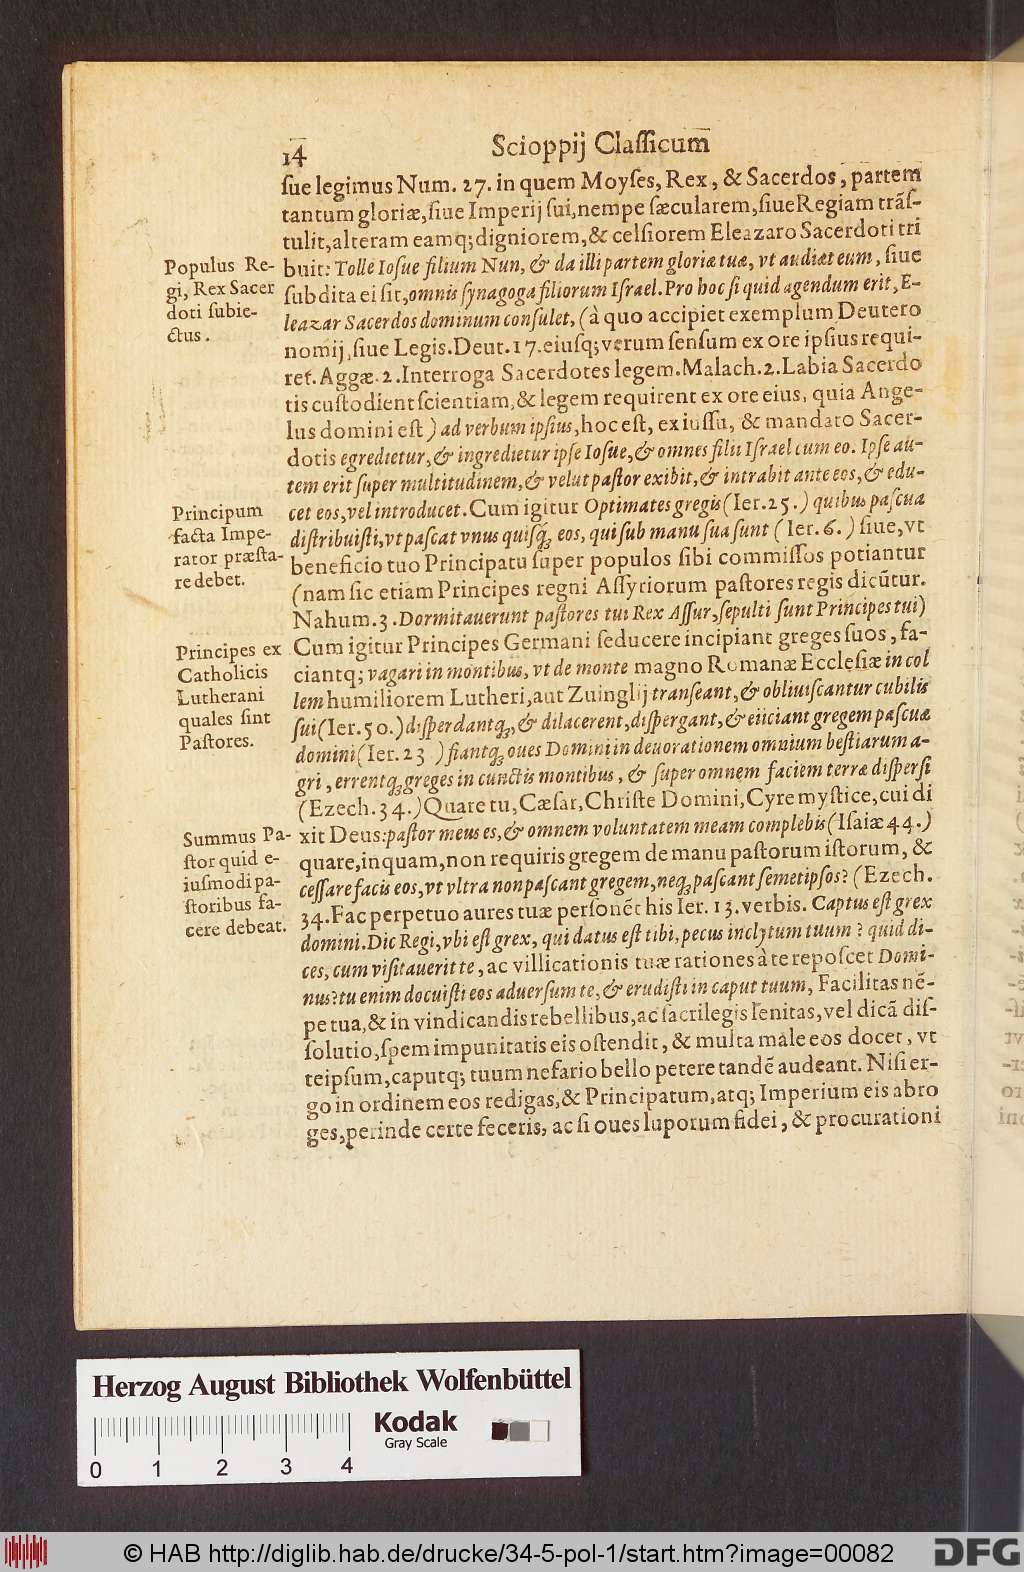 14
Scioppij Claſſicum̅
ſue legimus Num. 27. in quem Moyſes, Rex, & Sacerdos, partem
tantum gloriæ, ſiue Imperij ſui, nempe ſæcularem, ſiue Regiam trāſ-
tulit, alteram eamq; digniorem, & celſiorem Eleazaro Sacerdoti tri
buit: Tolle Ioſue filium Nun, & da illi partem gloriæ tuæ, vt audiæt eum, ſiue
ſubdita ei ſit, omnis ſynagoga filiorum Iſrael. Pro hoc ſi quid agendum erit, E-
leazar Sacerdos dominum conſulet, (à quo accipiet exemplum Deutero
nomij, ſiue Legis. Deut. 17. eiuſq; verum ſenſum ex ore ipſius requi-
ret. Aggæ. 2. Interroga Sacerdotes legem. Malach. 2. Labia Sacerdo
tis cuſtodient ſcientiam, & legem requirent ex ore eius, quia Ange-
lus domini eſt) ad verbum ipſius, hoc eſt, ex iuſſu, & mandato Sacer-
dotis egredietur, & ingredietur ipſe Ioſue, & omnes filii Iſrael cum eo. Ipſe au-
tem erit ſuper multitudinem, & velut paſtor exibit, & intrabit ante eos, & edu-
cet eos, vel introducet. Cum igitur Optimates gregis (Ier. 25.) quibus paſcua
diſtribuiſti, vt paſcat vnus quiſq; eos, qui ſub manu ſua ſunt (Ier. 6.) ſiue, vt
beneficio tuo Principatu ſuper populos ſibi commiſſos potiantur
(nam ſic etiam Principes regni Aſſyriorum paſtores regis dicūtur.
Nahum. 3. Dormitauerunt paſtores tui Rex Aſſur, ſepulti ſunt Principes tui)
Cum igitur Principes Germani ſeducere incipiant greges ſuos, fa-
ciantq; vagari in montibus, vt de monte magno Romanæ Eccleſiæ in col
lem humiliorem Lutheri, aut Zuinglij tranſeant, & obliuiſcantur cubilis
ſui (Ier. 50.) diſperdantq; & dilacerent, diſpergant, & eiiciant gregem paſcuæ
domini (Ier. 23 ) fiantq; oues Domini in deuorationem omnium beſtiarum a-
gri, errentq; greges in cunctis montibus, & ſuper omnem faciem terræ diſperſi
(Ezech. 34.) Quare tu, Cæſar, Chriſte Domini, Cyre myſtice, cui di
xit Deus: paſtor meus es, & omnem voluntatem meam complebis (Iſaiæ 44.)
quare, inquam, non requiris gregem de manu paſtorum iſtorum, &
ceſſare facis eos, vt vltra non paſcant gregem, neq; paſcant ſemetipſos? (Ezech.
34. Fac perpetuo aures tuæ perſonēt his Ier. 13. verbis. Captus eſt grex
domini. Dic Regi, vbi eſt grex, qui datus eſt tibi, pecus inclytum tuum? quid di-
ces, cum viſitauerit te, ac villicationis tuæ rationes à te repoſcet Domi-
nus? tu enim docuiſti eos aduerſum te, & erudiſti in caput tuum, Facilitas nē-
pe tua, & in vindicandis rebellibus, ac ſacrilegis lenitas, vel dicā diſ-
ſolutio, ſpem impunitatis eis oſtendit, & multa male eos docet, vt
teipſum, caputq; tuum nefario bello petere tandē audeant. Niſi er-
go in ordinem eos redigas, & Principatum, atq; Imperium eis abro
ges, perinde certe feceris, ac ſi oues luporum fidei, & procurationi
Populus Re-
gi, Rex Sacer
doti ſubie-
ctus.
Principum
facta Impe-
rator præſta-
re debet.
Principes ex
Catholicis
Lutherani
quales ſint
Paſtores.
Summus Pa-
ſtor quid e-
iuſmodi pa-
ſtoribus fa-
cere debeat.
Herzog August Bibliothek Wolfenbüttel
Kodak
Gray Scale
0 1 2 3 4
© HAB http://diglib.hab.de/drucke/34-5-pol-1/start.htm?image=00082
DFG